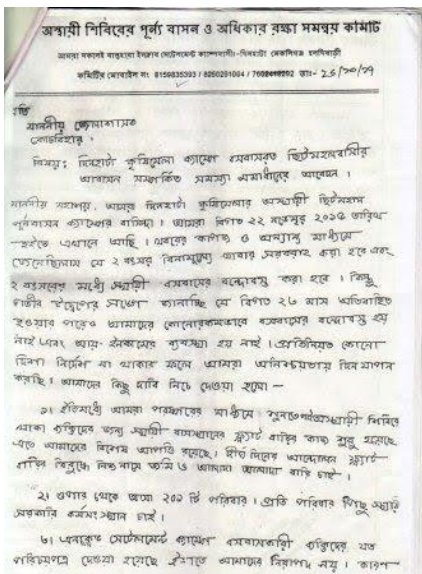 অস্থায়ী শিবিরের পূর্ন্য বাসন ও অধিকার রক্ষা সমন্বয় কমিটি
আমরা সকলেই
কমিটির মোবাইল নং 8159835393 / 8250291004 / তাং- 26/10/17
প্রতি
মাননীয় জেলাশাসক
কোচবিহার।
বিষয়: দিনহাটা কৃষিমেলা ক্যাম্পে বসবাসরত ছিটমহলবাসীর
আবাসন সম্পর্কিত সমস্যা সমাধানের আবেদন।
মাননীয় মহাশয়, আমরা দিনহাটা কৃষিমেলার অস্থায়ী ছিটমহল
পুনর্বাসন ক্যাম্পের বাসিন্দা। আমরা বিগত ২২ নভেম্বর ২০১৫ তারিখ
হইতে এখানে আছি। খবরের কাগজ ও অন্যান্য মাধ্যমে
জেনেছিলাম যে ২ বৎসর বিনামূল্যে খাবার সরবরাহ করা হবে এবং
২ বৎসরের মধ্যে স্থায়ী বসবাসের বন্দোবস্ত করা হবে। কিন্তু
গভীর উদ্বেগের সঙ্গে জানাচ্ছি যে বিগত ২৩ মাস অতিবাহিত
হওয়ার পরেও আমাদের কোনোরকমভাবে বসবাসের বন্দোবস্ত হয়
নাই এবং আয়-ইনকামের ব্যবস্থা হয় নাই। প্রতিনিয়ত কোনো
দিশা নির্দেশ না থাকার ফলে আমরা অনিশ্চয়তায় দিন যাপন
করছি। আমাদের কিছু দাবি নিচে দেওয়া হলো—
১। ইতিমধ্যে আমরা মাধ্যমে অস্থায়ী শিবিরে
থাকা ব্যক্তিদের জন্য স্থায়ী বাসস্থানের ফ্ল্যাট বাড়ির কাজ শুরু হয়েছে
এতে আমাদের বিশেষ আপত্তি রয়েছে। দীর্ঘ দিনের আন্দোলন ফ্ল্যাট
বাড়ির বিরুদ্ধে নিজ নামে জমি ও আলাদা আলাদা বাড়ি চাই।
২। ওপার থেকে আসা ২০১ টি পরিবার। প্রতি পরিবার পিছু স্থায়ী
সরকারি কর্মসংস্থান চাই।
৩। এনক্লেভ সেটেলমেন্ট ক্যাম্পে বসবাসকারী ব্যক্তিদের যত
পরিচয়পত্র দেওয়া হয়েছে আমাদের নিরাপদ নয়। কারণ